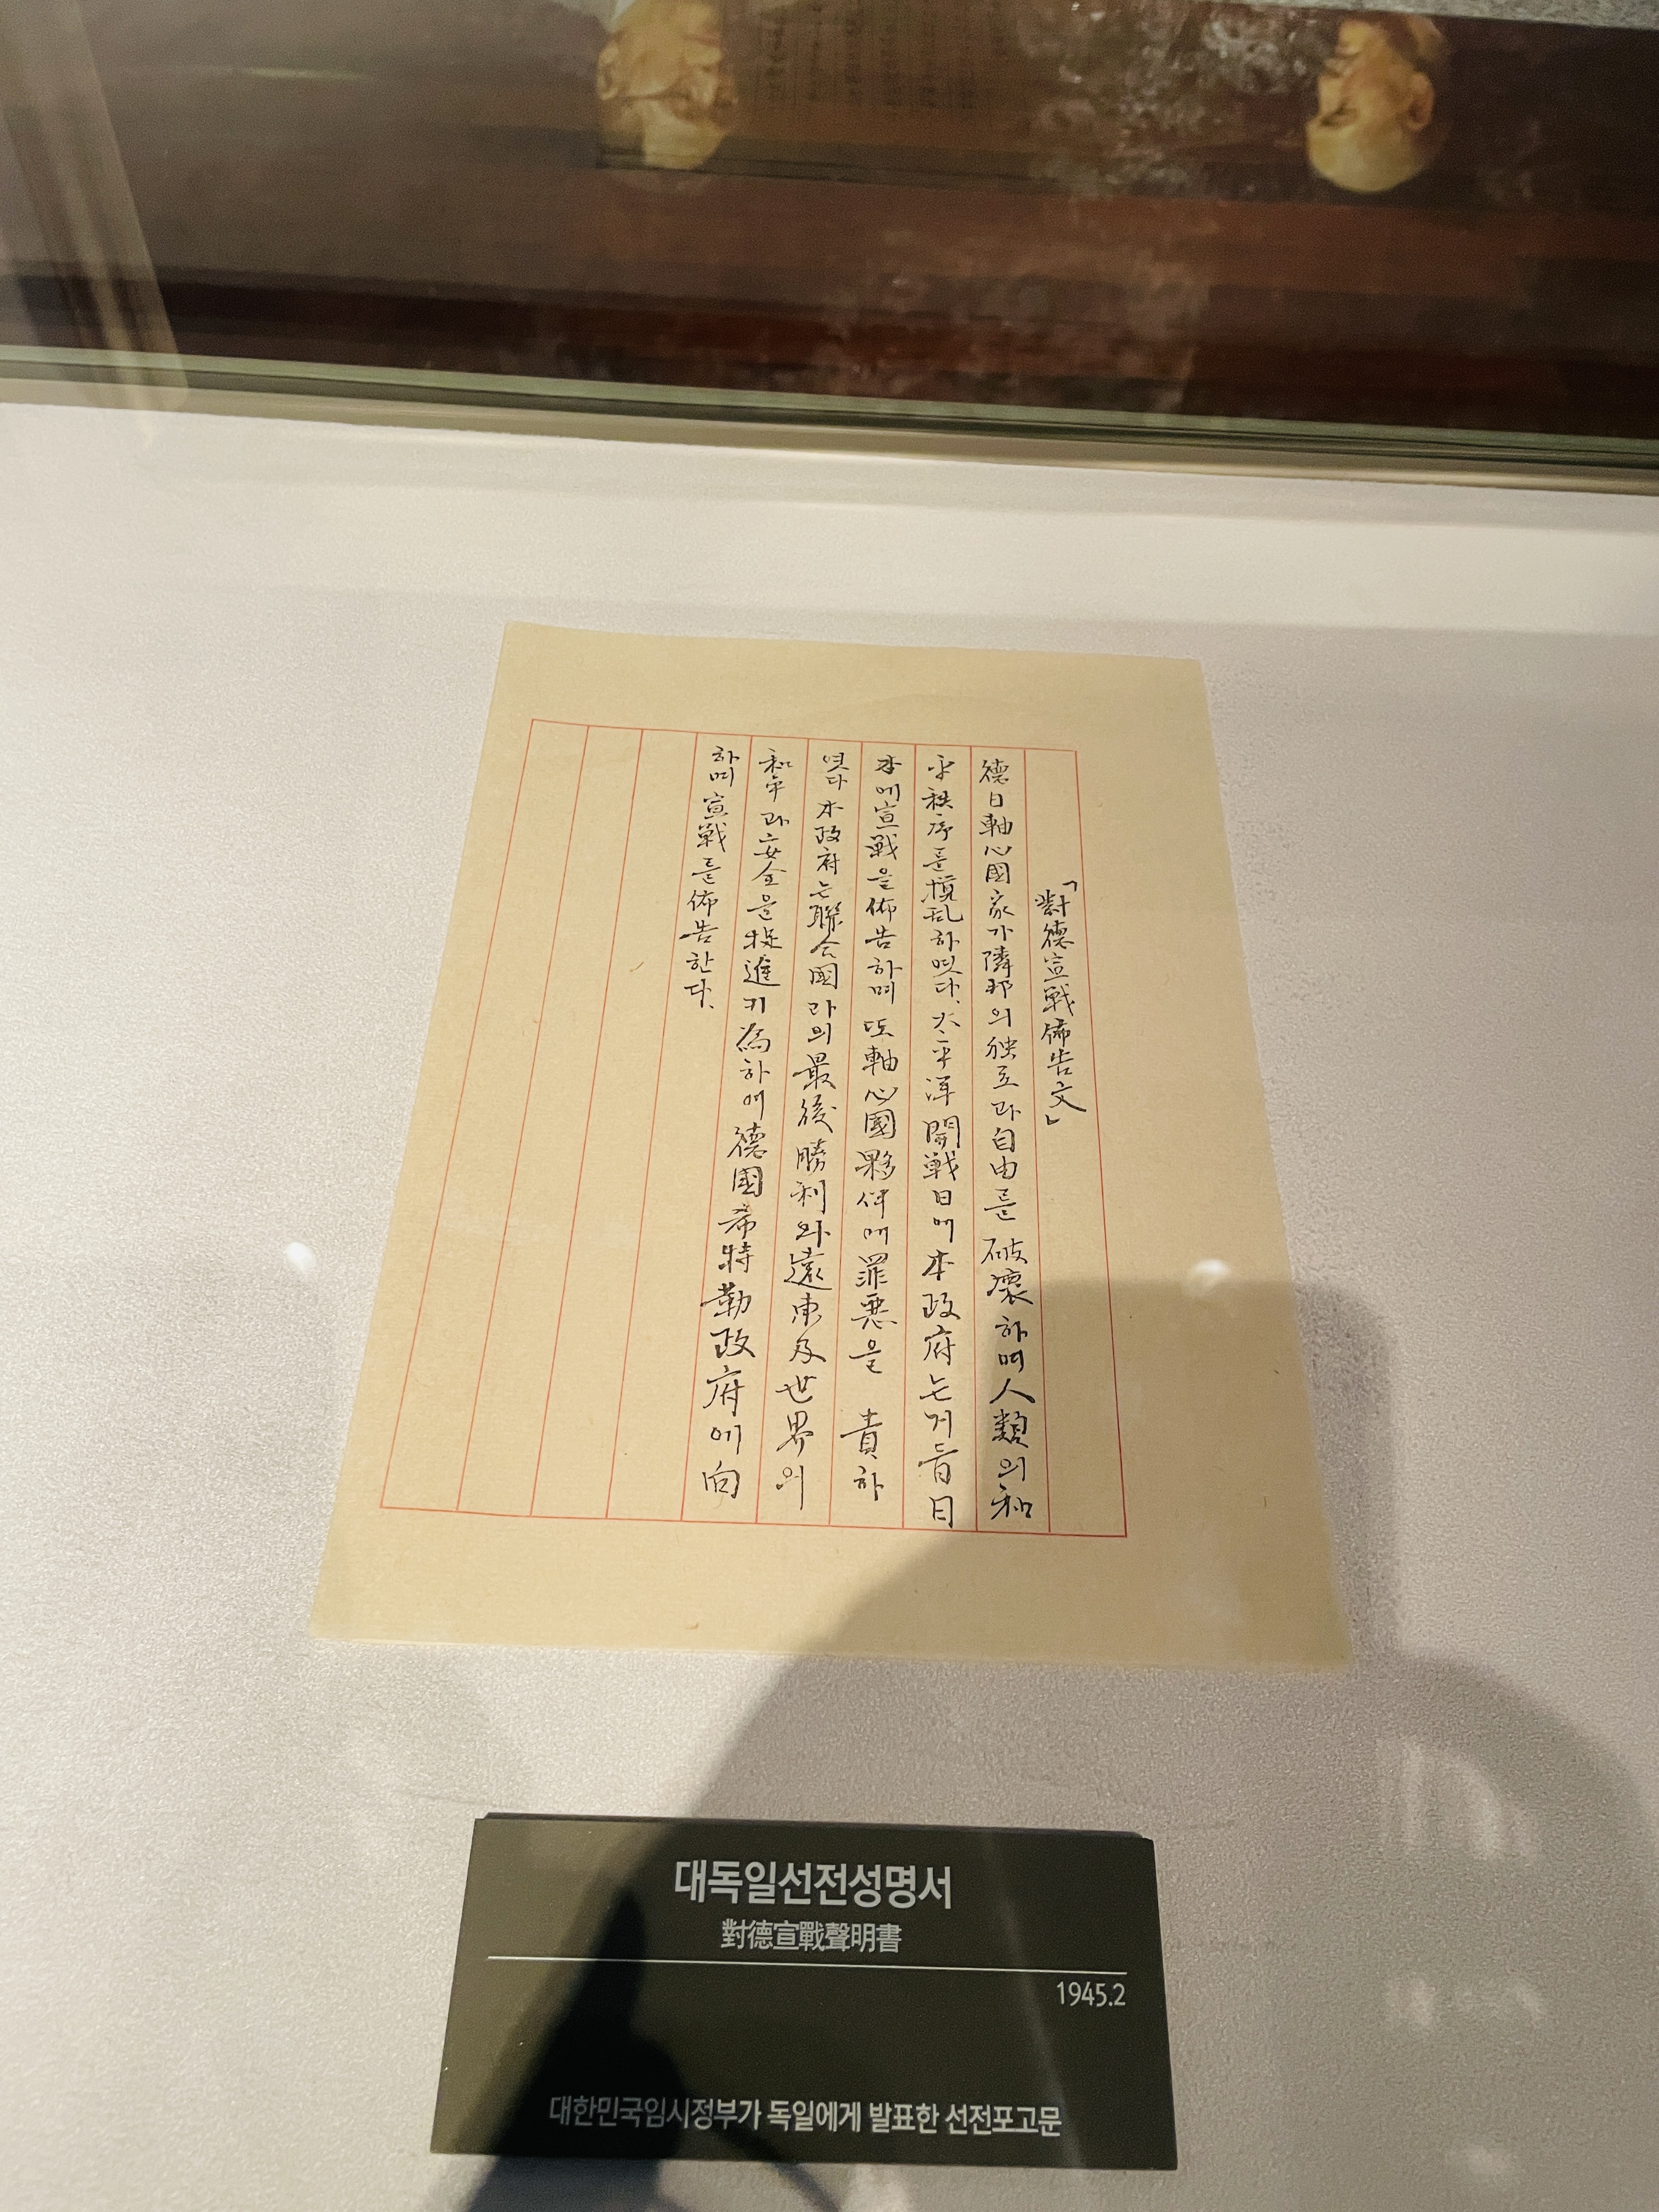 「對德宣戰佈告文」
德日軸心國家가隣邦의独立과自由를破壞하며人類의和
平秩序를攪乱하엿다.太平洋開戰日에本政府는거듭日
本에宣戰을佈告하며또軸心國夥伴에罪悪을責하
엿다本政府는聯合國과의最後勝利와遠東及世界의
和平과安全을促進키為하여德國希特勒政府에向
하며宣戰를佈告한다.
대독일선전성명서
對德宣戰聲明書
1945.2
대한민국임시정부가 독일에게 발표한 선전포고문